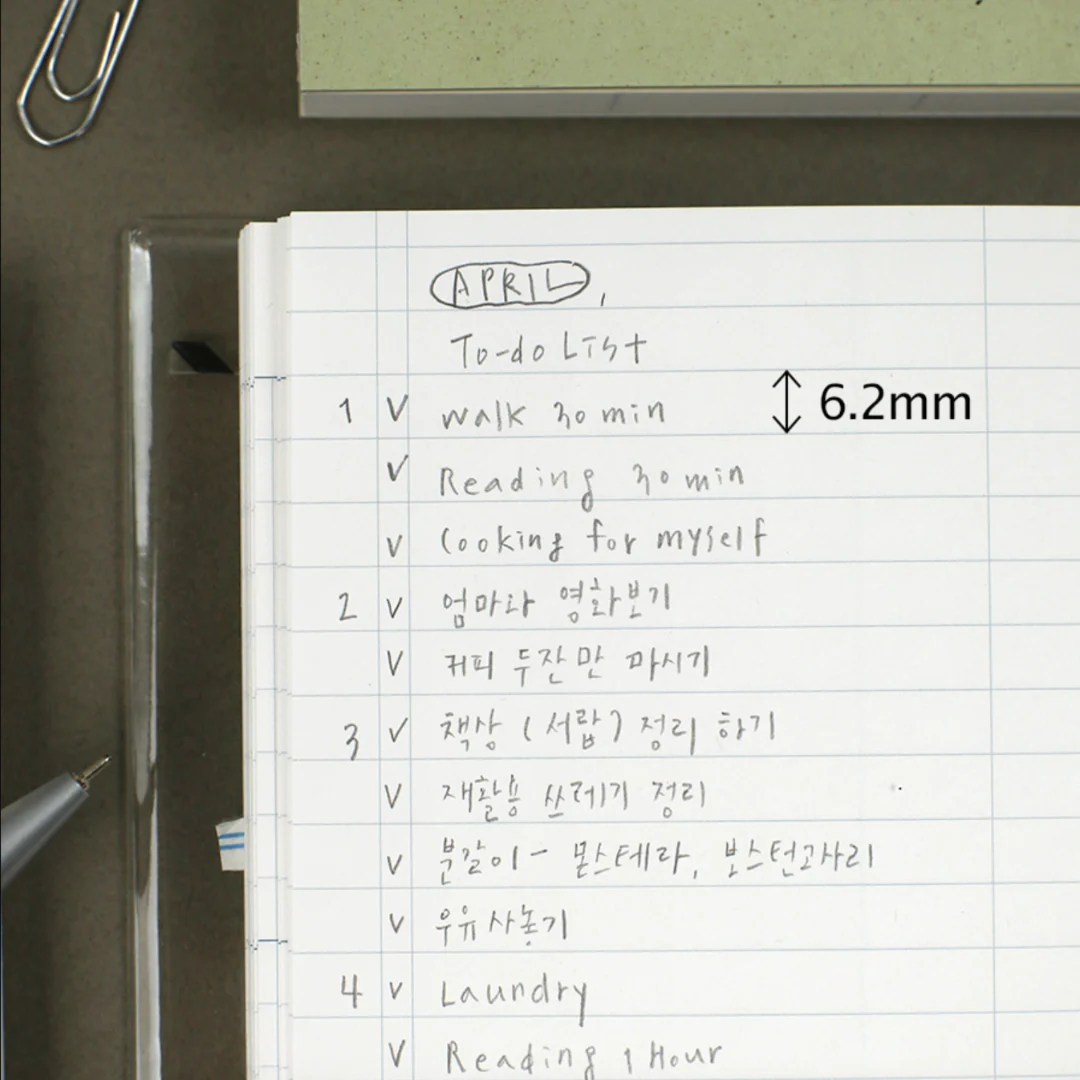 APRIL,
To-do List
1 V walk 30 min 6.2mm
V Reading 30 min
V Cooking for myself
2 V 엄마와 영화보기
V 커피 두잔만 마시기
3 V 책상 (서랍) 정리 하기
V 재활용 쓰레기 정리
V 분갈이 - 몬스테라, 보스턴고사리
V 우유 사놓기
4 V Laundry
V Reading 1 Hour